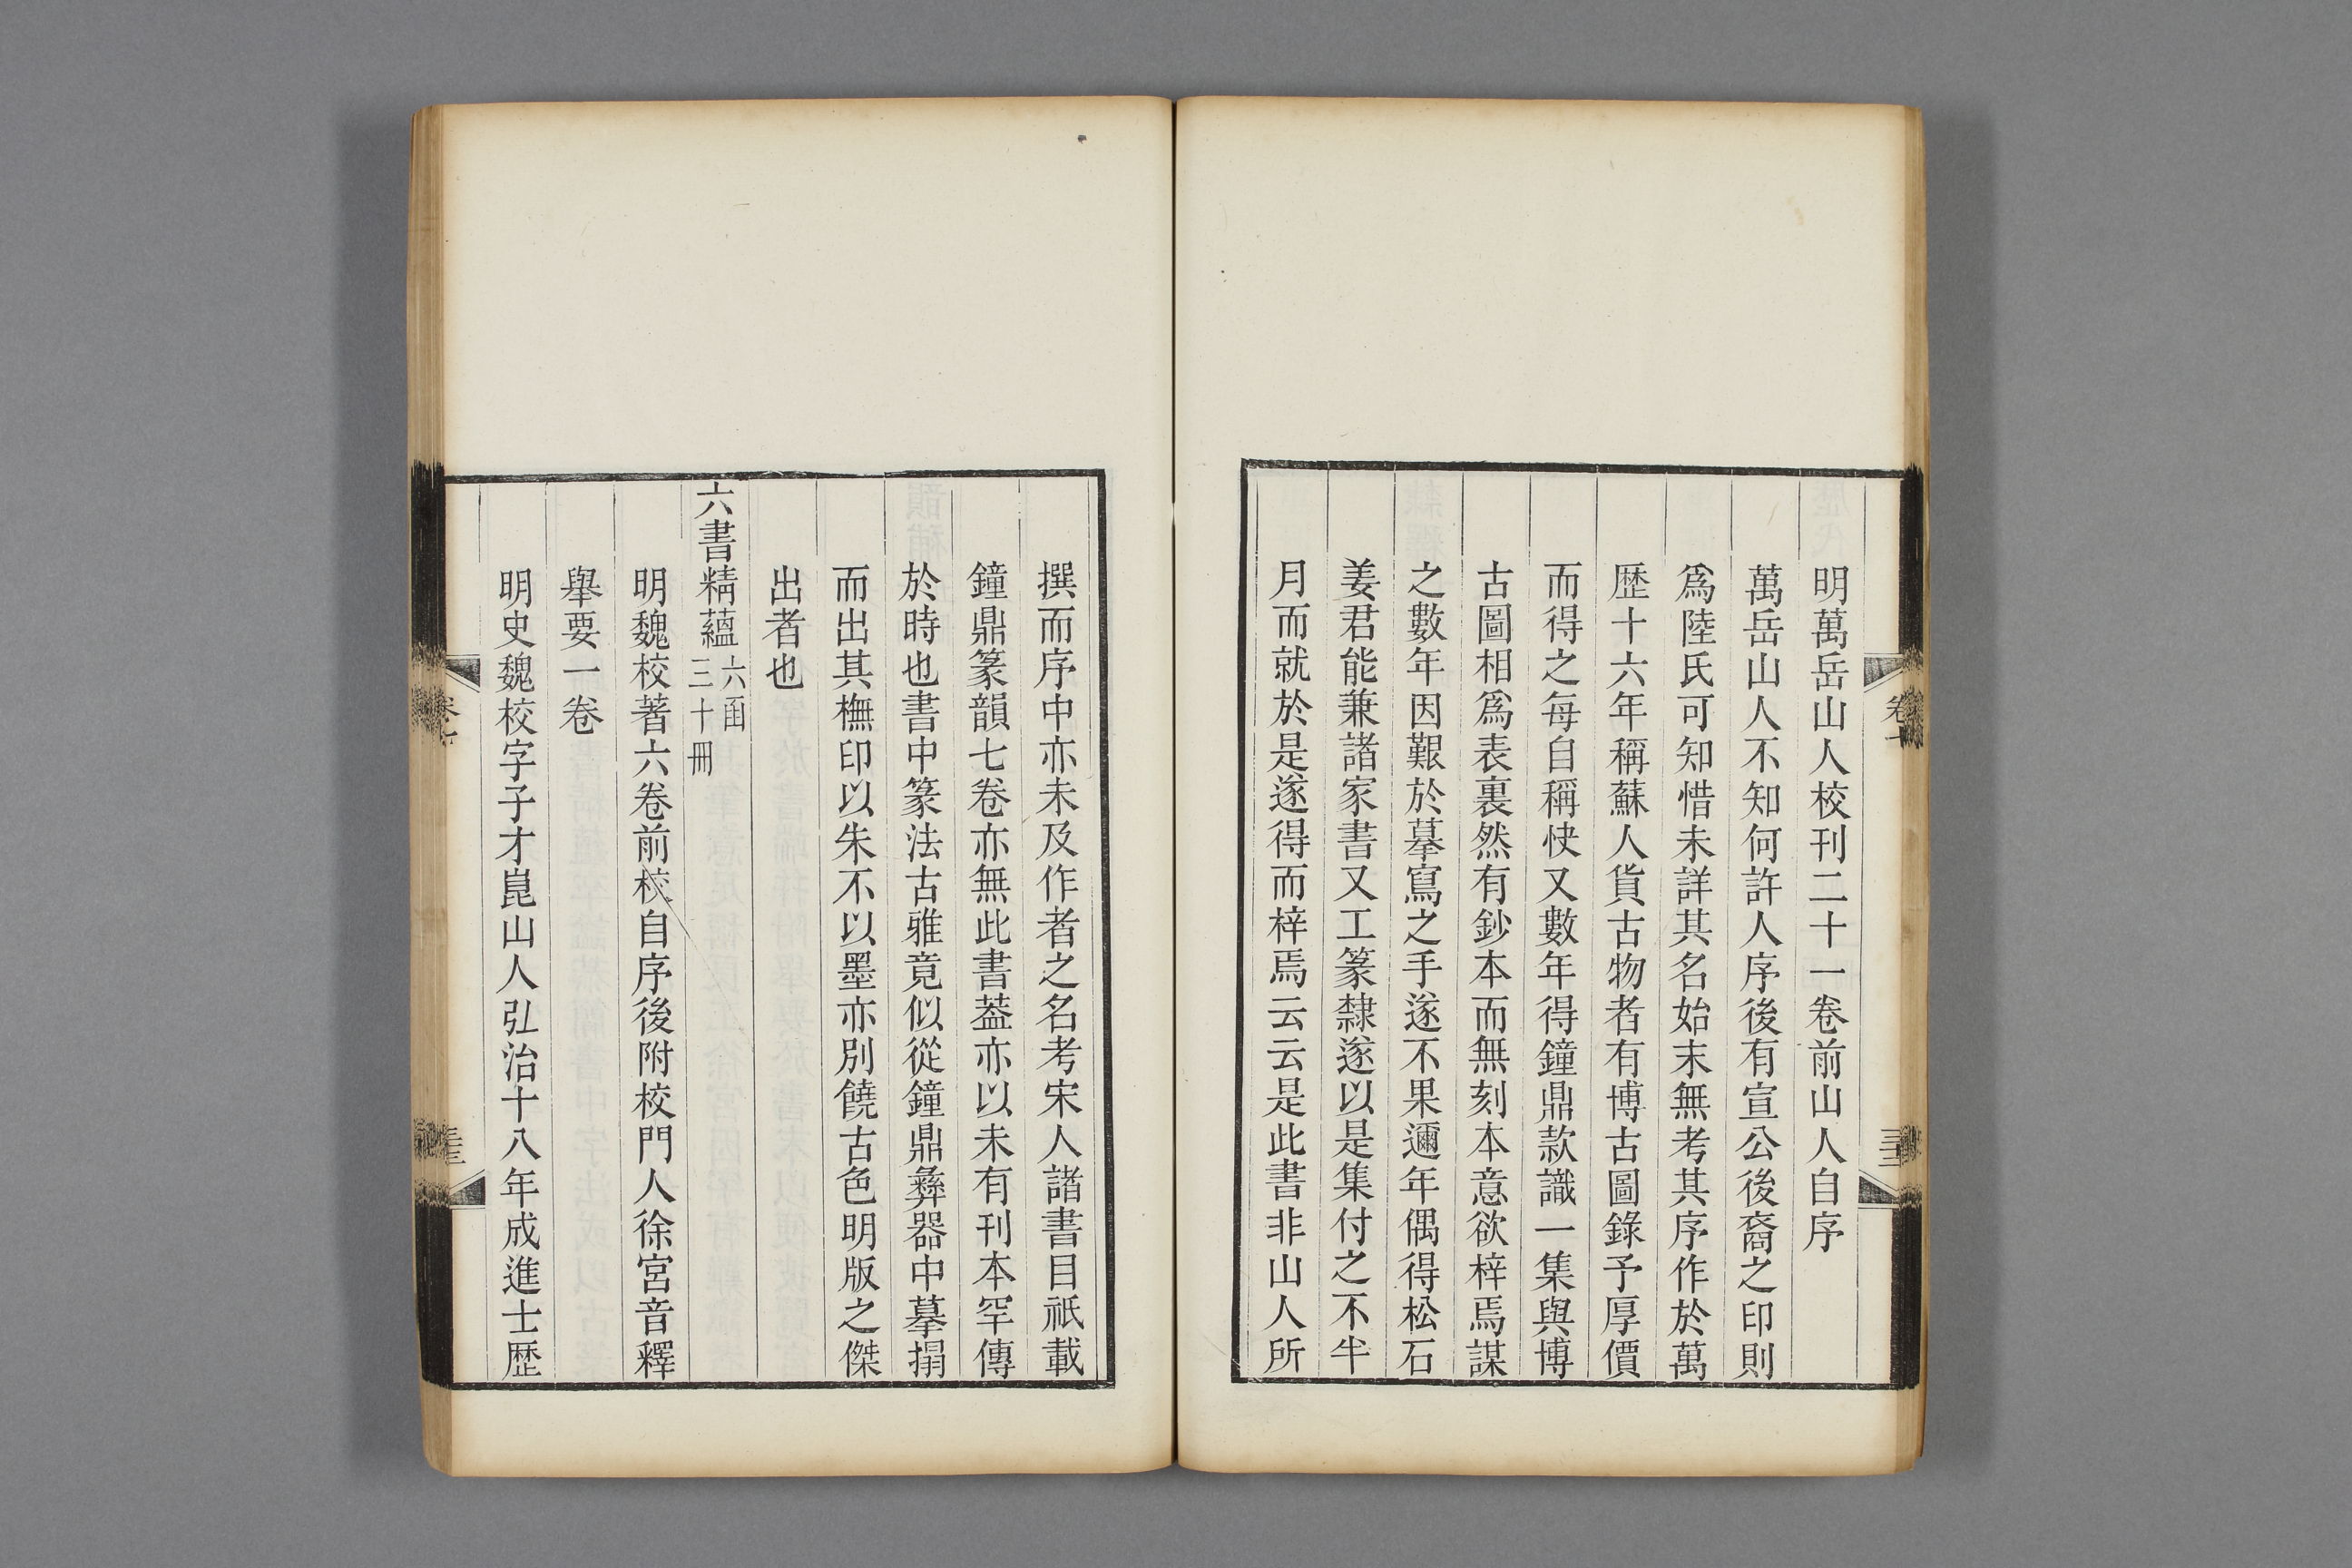 明萬岳山人校刊二十一卷前山人自序
萬岳山人不知何許人序後有宣公後裔之印則
爲陸氏可知惜未詳其名始末無考其序作於萬
歷十六年稱蘇人貨古物者有博古圖錄予厚價
而得之每自稱快又數年得鐘鼎款識一集與博
古圖相爲表裏然有鈔本而無刻本意欲梓焉謀
之數年因艱於摹寫之手遂不果邇年偶得松石
姜君能兼諸家書又工篆隸遂以是集付之不半
月而就於是遂得而梓焉云云是此書非山人所
撰而序中亦未及作者之名考宋人諸書目祇載
鐘鼎篆韻七卷亦無此書蓋亦以未有刊本罕傳
於時也書中篆法古雅竟似從鐘鼎彝器中摹搨
而出其橅印以朱不以墨亦別饒古色明版之傑
出者也
六書精蘊 六函
三十冊
明魏校著六卷前校自序後附校門人徐宮音釋
舉要一卷
明史魏校字子才崑山人弘治十八年成進士歷